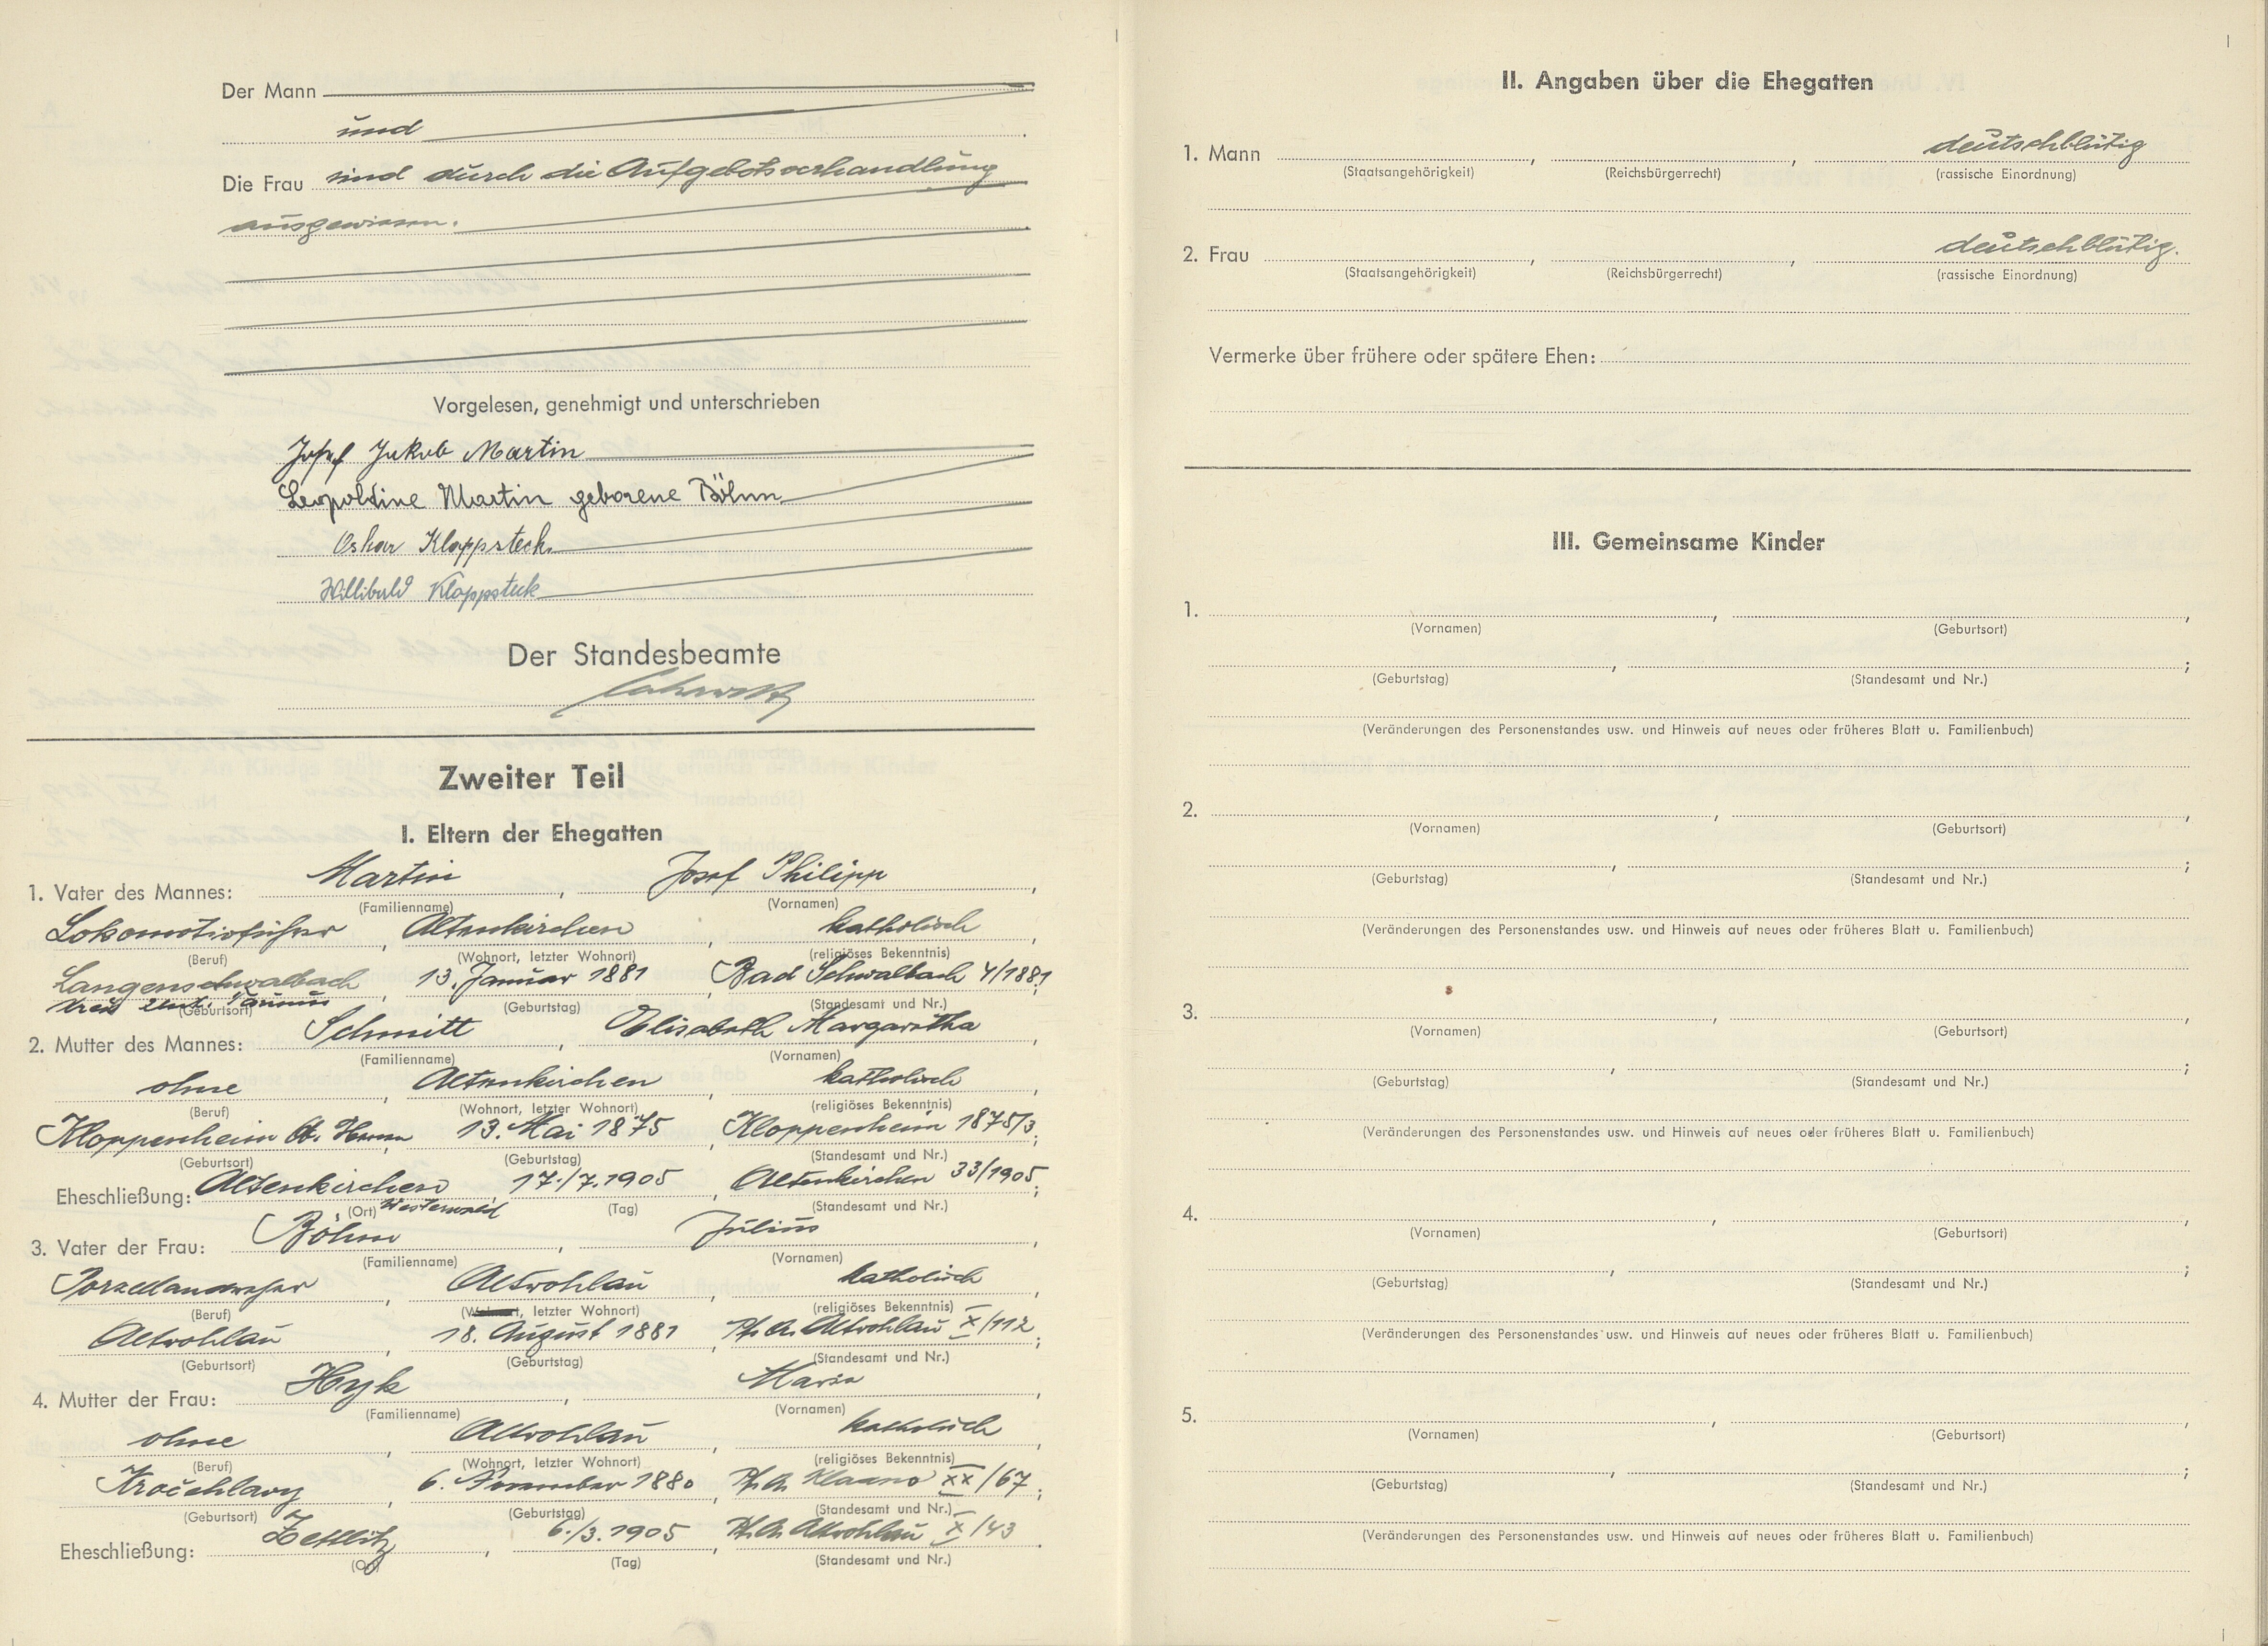 Der Mann
und
Die Frau sind durch die Aufgebotsverhandlung
ausgewiesen.
Vorgelesen, genehmigt und unterschrieben
Josef Jakob Martin
Leopoldine Martin geborene Böhm
Oskar Klappsteck
Willibald Klappsteck
Der Standesbeamte
Zweiter Teil
I. Eltern der Ehegatten
1. Vater des Mannes: Martin, Josef Philipp,
(Familienname) (Vornamen)
Lokomotivführer, Altenkirchen, katholisch,
(Beruf) (Wohnort, letzter Wohnort) (religiöses Bekenntnis)
Langenschwalbach, 13. Januar 1881, Bad Schwalbach 4/1881;
Kreis Taunus
(Geburtsort) (Geburtstag) (Standesamt und Nr.)
2. Mutter des Mannes: Schmitt, Elisabeth Margaretha,
(Familienname) (Vornamen)
ohne, Altenkirchen, katholisch,
(Beruf) (Wohnort, letzter Wohnort) (religiöses Bekenntnis)
Kloppenheim, 13. Mai 1875, Kloppenheim 1875/3;
(Geburtsort) (Geburtstag) (Standesamt und Nr.)
Eheschließung: Altenkirchen, 17./7.1905, Altenkirchen 33/1905;
(Ort) Westerwald (Tag) (Standesamt und Nr.)
3. Vater der Frau: Böhm, Julius,
(Familienname) (Vornamen)
Porzellandreher, Altrohlau, katholisch,
(Beruf) (Wohnort, letzter Wohnort) (religiöses Bekenntnis)
Altrohlau, 18. August 1881, Pf. A. Altrohlau X/112;
(Geburtsort) (Geburtstag) (Standesamt und Nr.)
4. Mutter der Frau: Hyk, Maria,
(Familienname) (Vornamen)
ohne, Altrohlau, katholisch,
(Beruf) (Wohnort, letzter Wohnort) (religiöses Bekenntnis)
Kročehlavy, 6. November 1880, Pf. A. XX/67;
(Geburtsort) (Geburtstag) (Standesamt und Nr.)
Eheschließung: Zettlitz, 6./3.1905, Pf. A. Altrohlau X/43.
(Ort) (Tag) (Standesamt und Nr.)
II. Angaben über die Ehegatten
1. Mann , , deutschblütig
(Staatsangehörigkeit) (Reichsbürgerrecht) (rassische Einordnung)
2. Frau , , deutschblütig.
(Staatsangehörigkeit) (Reichsbürgerrecht) (rassische Einordnung)
Vermerke über frühere oder spätere Ehen:
III. Gemeinsame Kinder
1. , ,
(Vornamen) (Geburtsort)
, ;
(Geburtstag) (Standesamt und Nr.)
(Veränderungen des Personenstandes usw. und Hinweis auf neues oder früheres Blatt u. Familienbuch)
2. , ,
(Vornamen) (Geburtsort)
, ;
(Geburtstag) (Standesamt und Nr.)
(Veränderungen des Personenstandes usw. und Hinweis auf neues oder früheres Blatt u. Familienbuch)
3. , ,
(Vornamen) (Geburtsort)
, ;
(Geburtstag) (Standesamt und Nr.)
(Veränderungen des Personenstandes usw. und Hinweis auf neues oder früheres Blatt u. Familienbuch)
4. , ,
(Vornamen) (Geburtsort)
, ;
(Geburtstag) (Standesamt und Nr.)
(Veränderungen des Personenstandes usw. und Hinweis auf neues oder früheres Blatt u. Familienbuch)
5. , ,
(Vornamen) (Geburtsort)
, ;
(Geburtstag) (Standesamt und Nr.)
(Veränderungen des Personenstandes usw. und Hinweis auf neues oder früheres Blatt u. Familienbuch)